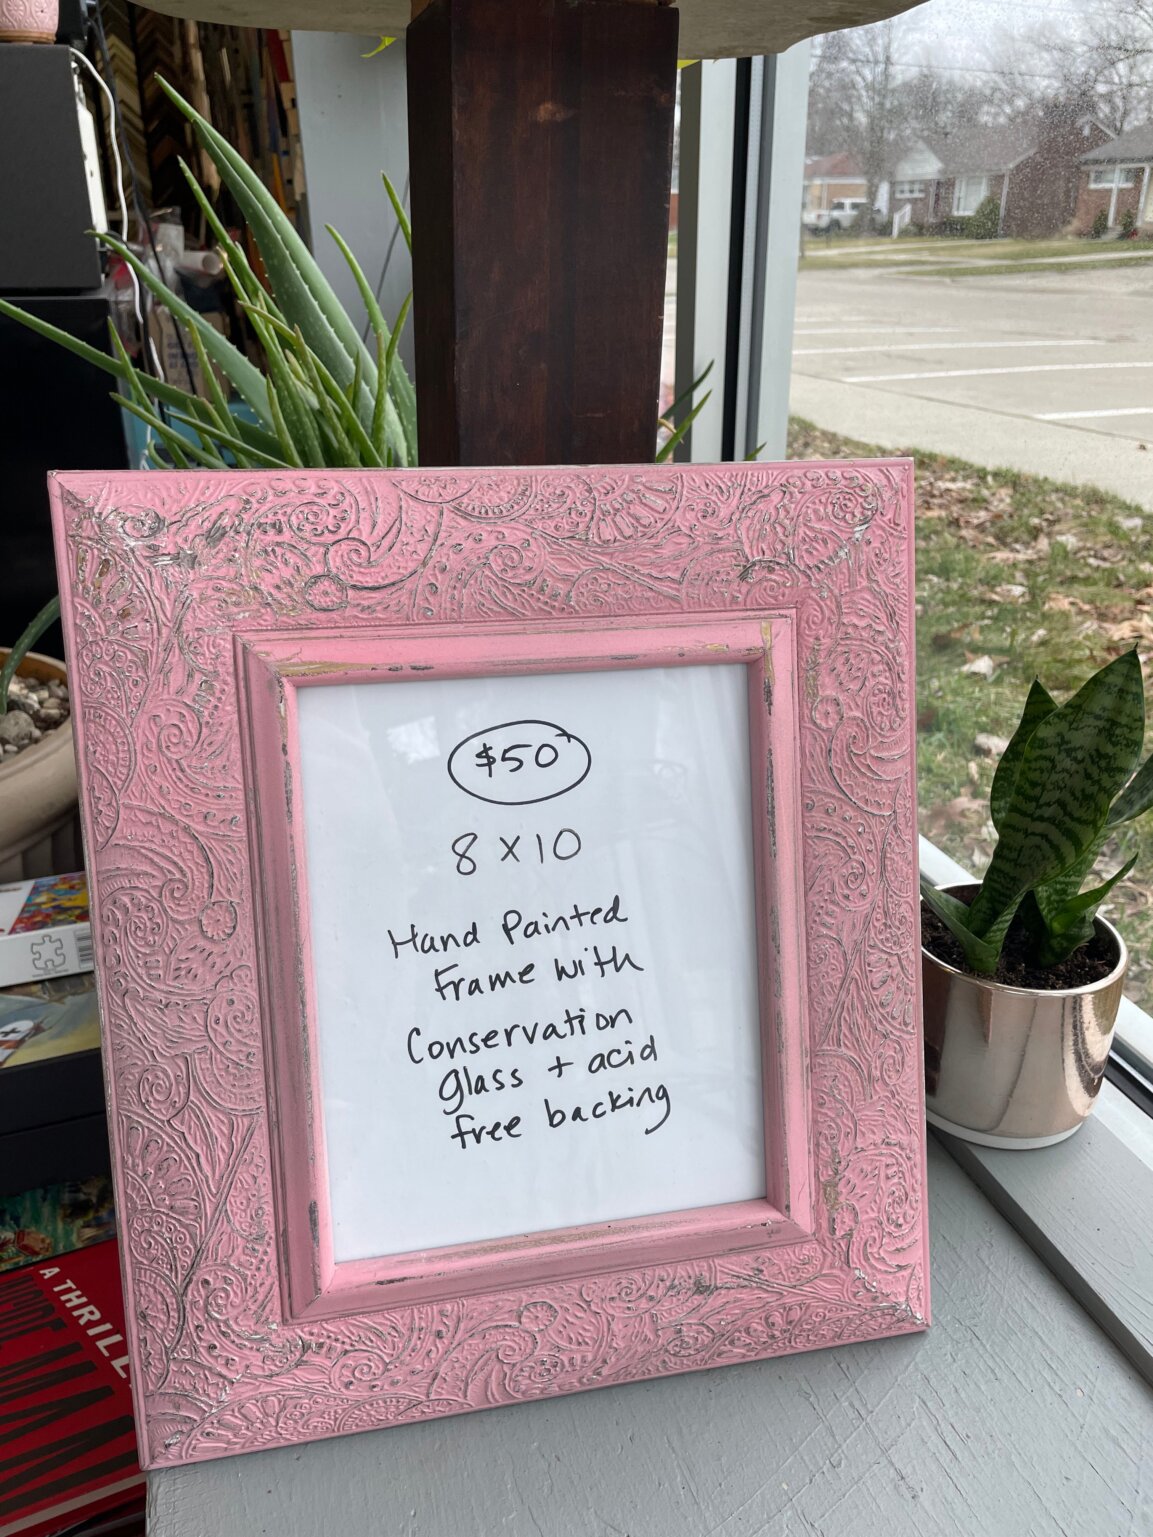 $50
8 x 10
Hand Painted
Frame with
Conservation
glass + acid
free backing
A THRILL